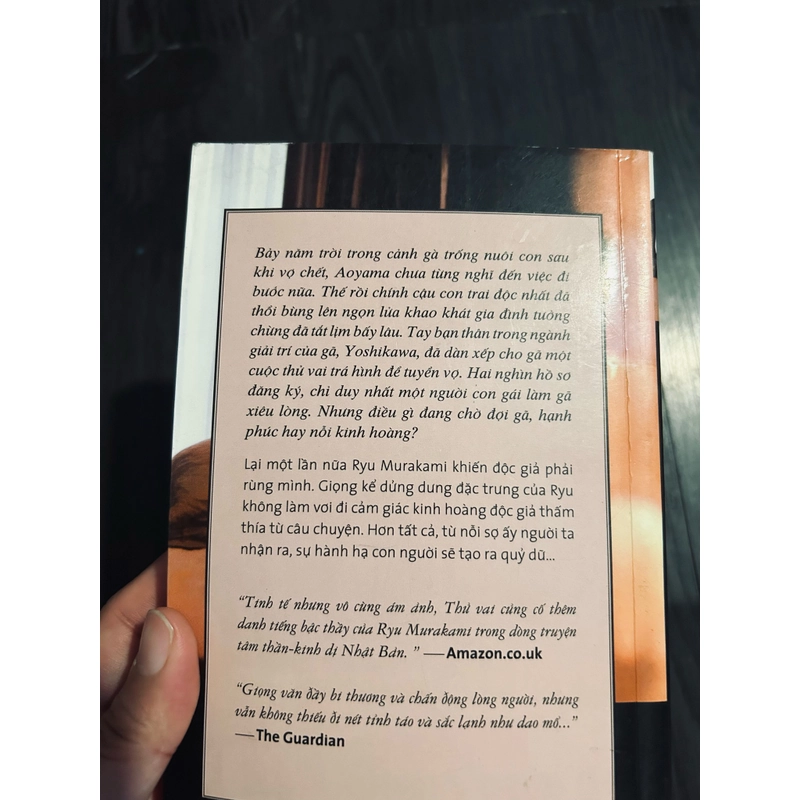 Bảy năm trời trong cảnh gà trống nuôi con sau
khi vợ chết, Aoyama chưa từng nghĩ đến việc đi
bước nữa. Thế rồi chính cậu con trai độc nhất đã
thổi bùng lên ngọn lửa khao khát gia đình tưởng
chừng đã tắt lịm bấy lâu. Tay bạn thân trong ngành
giải trí của gã, Yoshikawa, đã dàn xếp cho gã một
cuộc thử vai trá hình để tuyển vợ. Hai nghìn hồ sơ
đăng ký, chỉ duy nhất một người con gái làm gã
xiêu lòng. Nhưng điều gì đang chờ đợi gã, hạnh
phúc hay nỗi kinh hoàng?
Lại một lần nữa Ryu Murakami khiến độc giả phải
rùng mình. Giọng kể dửng dưng đặc trưng của Ryu
không làm vơi đi cảm giác kinh hoàng độc giả thấm
thía từ câu chuyện. Hơn tất cả, từ nỗi sợ ấy người ta
nhận ra, sự hành hạ con người sẽ tạo ra quỷ dữ...
“Tinh tế nhưng vô cùng ám ảnh, Thử vai củng cố thêm
danh tiếng bậc thầy của Ryu Murakami trong dòng truyện
tâm thần-kinh dị Nhật Bản. ” — Amazon.co.uk
“Giọng văn đầy bi thương và chấn động lòng người, nhưng
vẫn không thiếu đi nét tỉnh táo và sắc lạnh như dao mổ...”
— The Guardian